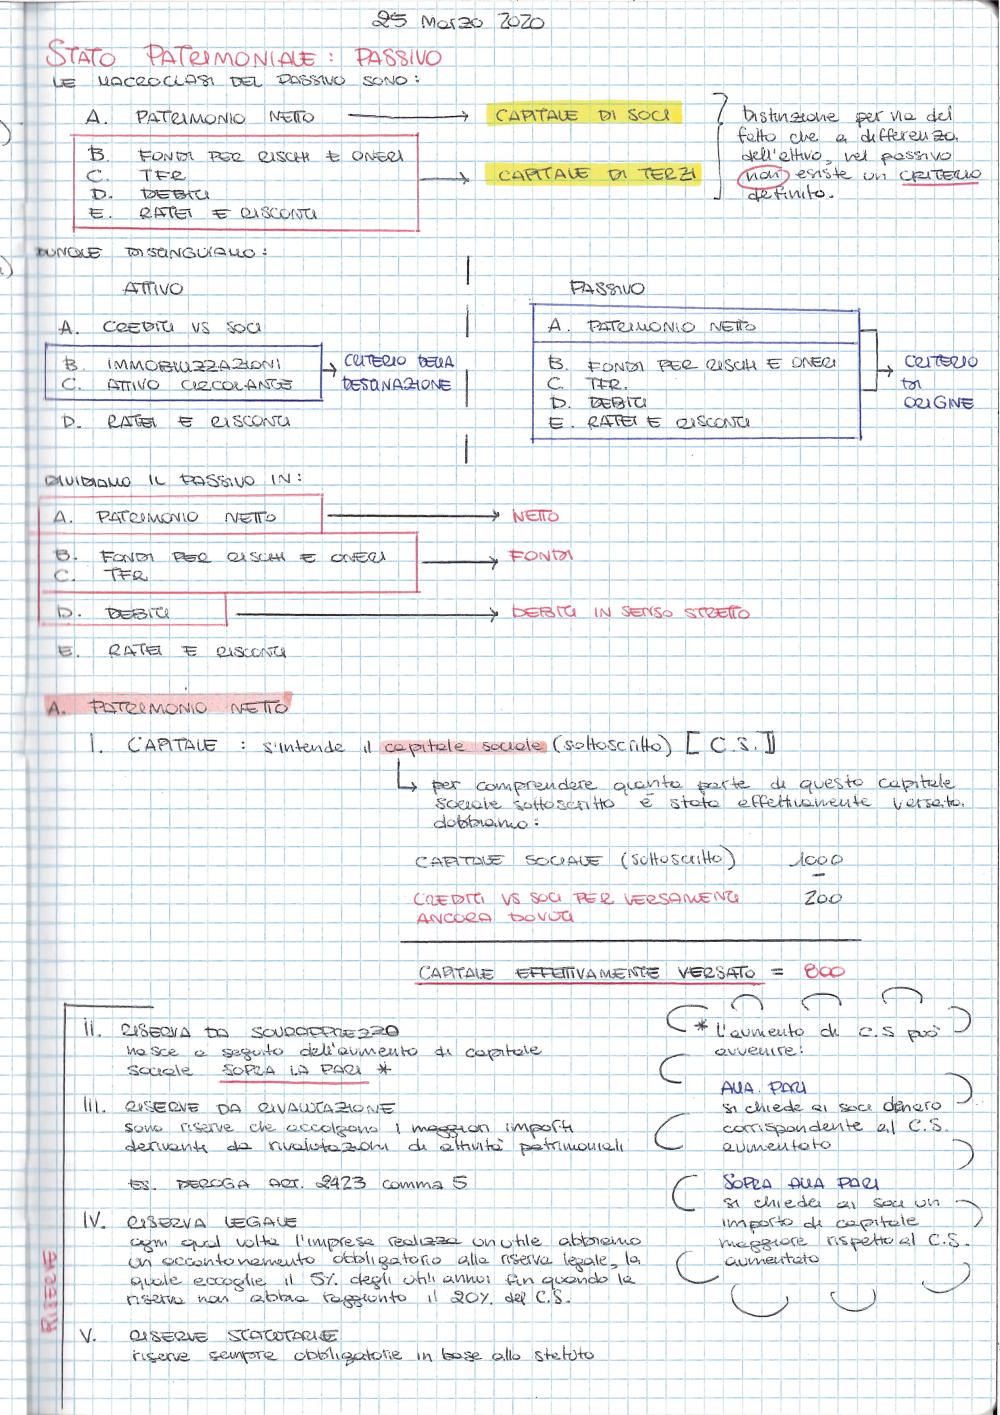 25 Marzo 2020
STATO PATRIMONIALE : PASSIVO
LE MACROCLASI DEL PASSIVO SONO :
A. PATRIMONIO NETTO → CAPITALE DI SOCI
B. FONDI PER RISCHI E ONERI
C. TFR
D. DEBITI
E. RATEI E RISCONTI
→ CAPITALE DI TERZI
Distinzione per via del
fatto che a differenza
dell'attivo, nel passivo
non esiste un CRITERIO
definito.
DUNQUE DISTINGUIAMO :
ATTIVO
A. CREDITI VS SOCI
B. IMMOBILIZZAZIONI
C. ATTIVO CIRCOLANTE
→ CRITERIO DELLA
DESTINAZIONE
D. RATEI E RISCONTI
PASSIVO
A. PATRIMONIO NETTO
B. FONDI PER RISCHI E ONERI
C. TFR.
D. DEBITI
E. RATEI E RISCONTI
→ CRITERIO
DI
ORIGINE
DIVIDIAMO IL PASSIVO IN :
A. PATRIMONIO NETTO → NETTO
B. FONDI PER RISCHI E ONERI → FONDI
C. TFR
D. DEBITI → DEBITI IN SENSO STRETTO
E. RATEI E RISCONTI
A. PATRIMONIO NETTO
I. CAPITALE : s'intende il capitale sociale (sottoscritto) [C.S.]
↳ per comprendere quanta parte di questo capitale
sociale sottoscritto è stata effettivamente versata.
dobbiamo :
CAPITALE SOCIALE (sottoscritto) 1000
-
CREDITI VS SOCI PER VERSAMENTI 200
ANCORA DOVUTI
CAPITALE EFFETTIVAMENTE VERSATO = 800
II. RISERVA DA SOVRAPPREZZO
nasce a seguito dell'aumento di capitale
sociale SOPRA LA PARI *
III. RISERVE DA RIVALUTAZIONE
sono riserve che accolgono i maggiori importi
derivanti da rivalutazioni di attività patrimoniali
ES. DEROGA ART. 2423 comma 5
IV. RISERVA LEGALE
ogni qual volta l'impresa realizza un utile abbiamo
un accantonamento obbligatorio alla riserva legale, la
quale accoglie il 5% degli utili annui fin quando la
riserva non abbia raggiunto il 20% del C.S.
V. RISERVE STATUTARIE
riserve sempre obbligatorie in base allo statuto
RISERVE
* L'aumento di C.S può
avvenire :
ALLA PARI
si chiede ai soci denaro
corrispondente al C.S.
aumentato
SOPRA ALLA PARI
si chiede ai soci un
importo di capitale
maggiore rispetto al C.S.
aumentato